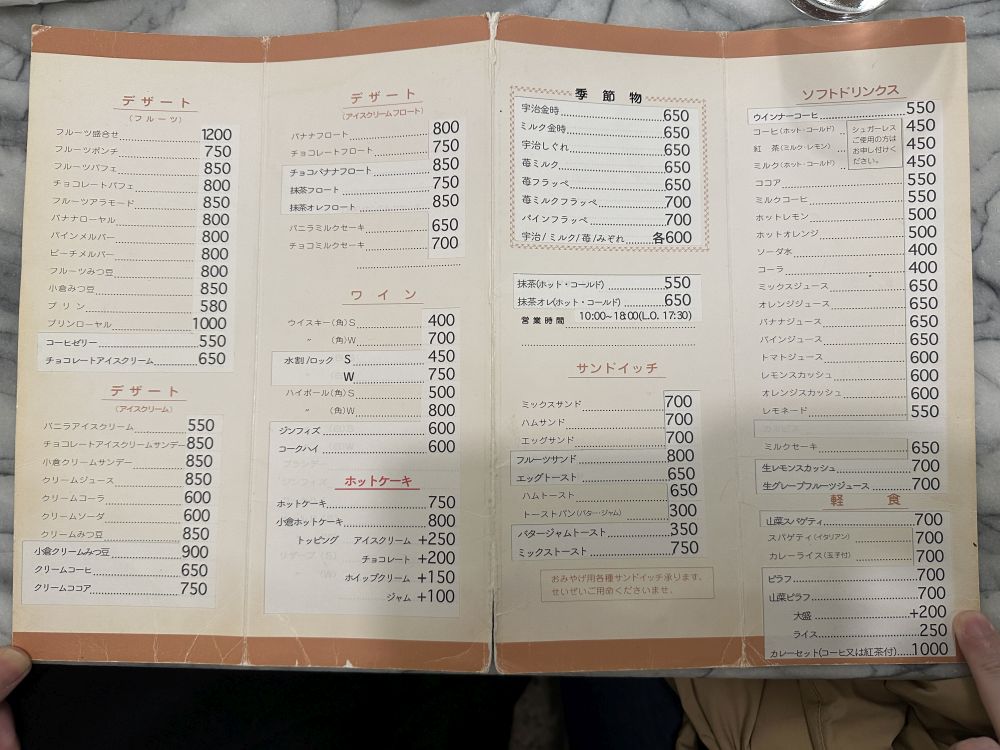 デザート
(フルーツ)
フルーツ盛合せ 1200
フルーツポンチ 750
フルーツパフェ 850
チョコレートパフェ 800
フルーツアラモード 850
バナナローヤル 800
パインメルバー 800
ピーチメルバー 800
フルーツみつ豆 800
小倉みつ豆 850
プリン 580
プリンローヤル 1000
コーヒゼリー 550
チョコレートアイスクリーム 650
デザート
(アイスクリーム)
バニラアイスクリーム 550
チョコレートアイスクリームサンデー 850
小倉クリームサンデー 850
クリームジュース 850
クリームコーラ 600
クリームソーダ 600
クリームみつ豆 850
小倉クリームみつ豆 900
クリームコーヒ 650
クリームココア 750
デザート
(アイスクリームフロート)
バナナフロート 800
チョコレートフロート 750
チョコバナナフロート 850
抹茶フロート 750
抹茶オレフロート 850
バニラミルクセーキ 650
チョコミルクセーキ 700
ワイン
ウイスキー(角)S 400
〃 (角)W 700
水割/ロック S 450
W 750
ハイボール(角)S 500
〃 (角)W 800
ジンフィズ 600
コークハイ 600
ホットケーキ
ホットケーキ 750
小倉ホットケーキ 800
トッピング アイスクリーム +250
チョコレート +200
ホイップクリーム +150
ジャム +100
季節物
宇治金時 650
ミルク金時 650
宇治しぐれ 650
苺ミルク 650
苺フラッペ 650
苺ミルクフラッペ 700
パインフラッペ 700
宇治/ミルク/苺/みぞれ 各600
抹茶(ホット・コールド) 550
抹茶オレ(ホット・コールド) 650
営業時間 10:00~18:00(L.O. 17:30)
サンドイッチ
ミックスサンド 700
ハムサンド 700
エッグサンド 700
フルーツサンド 800
エッグトースト 650
ハムトースト 650
トーストパン(バター・ジャム) 300
バタージャムトースト 350
ミックストースト 750
おみやげ用各種サンドイッチ承ります。
せいぜいご用命くださいませ。
ソフトドリンクス
ウインナーコーヒ 550
コーヒ(ホット・コールド) 450
紅茶(ミルク・レモン) 450
ミルク(ホット・コールド) 450
シュガーレス
ご使用の方は
お申し付けく
ださい。
ココア 550
ミルクコーヒ 550
ホットレモン 500
ホットオレンジ 500
ソーダ水 400
コーラ 400
ミックスジュース 650
オレンジジュース 650
バナナジュース 650
パインジュース 650
トマトジュース 600
レモンスカッシュ 600
オレンジスカッシュ 600
レモネード 550
ミルクセーキ 650
生レモンスカッシュ 700
生グレープフルーツジュース 700
軽食
山菜スパゲティ 700
スパゲティ(イタリアン) 700
カレーライス(玉子付) 700
ピラフ 700
山菜ピラフ 700
大盛 +200
ライス 250
カレーセット(コーヒ又は紅茶付) 1000